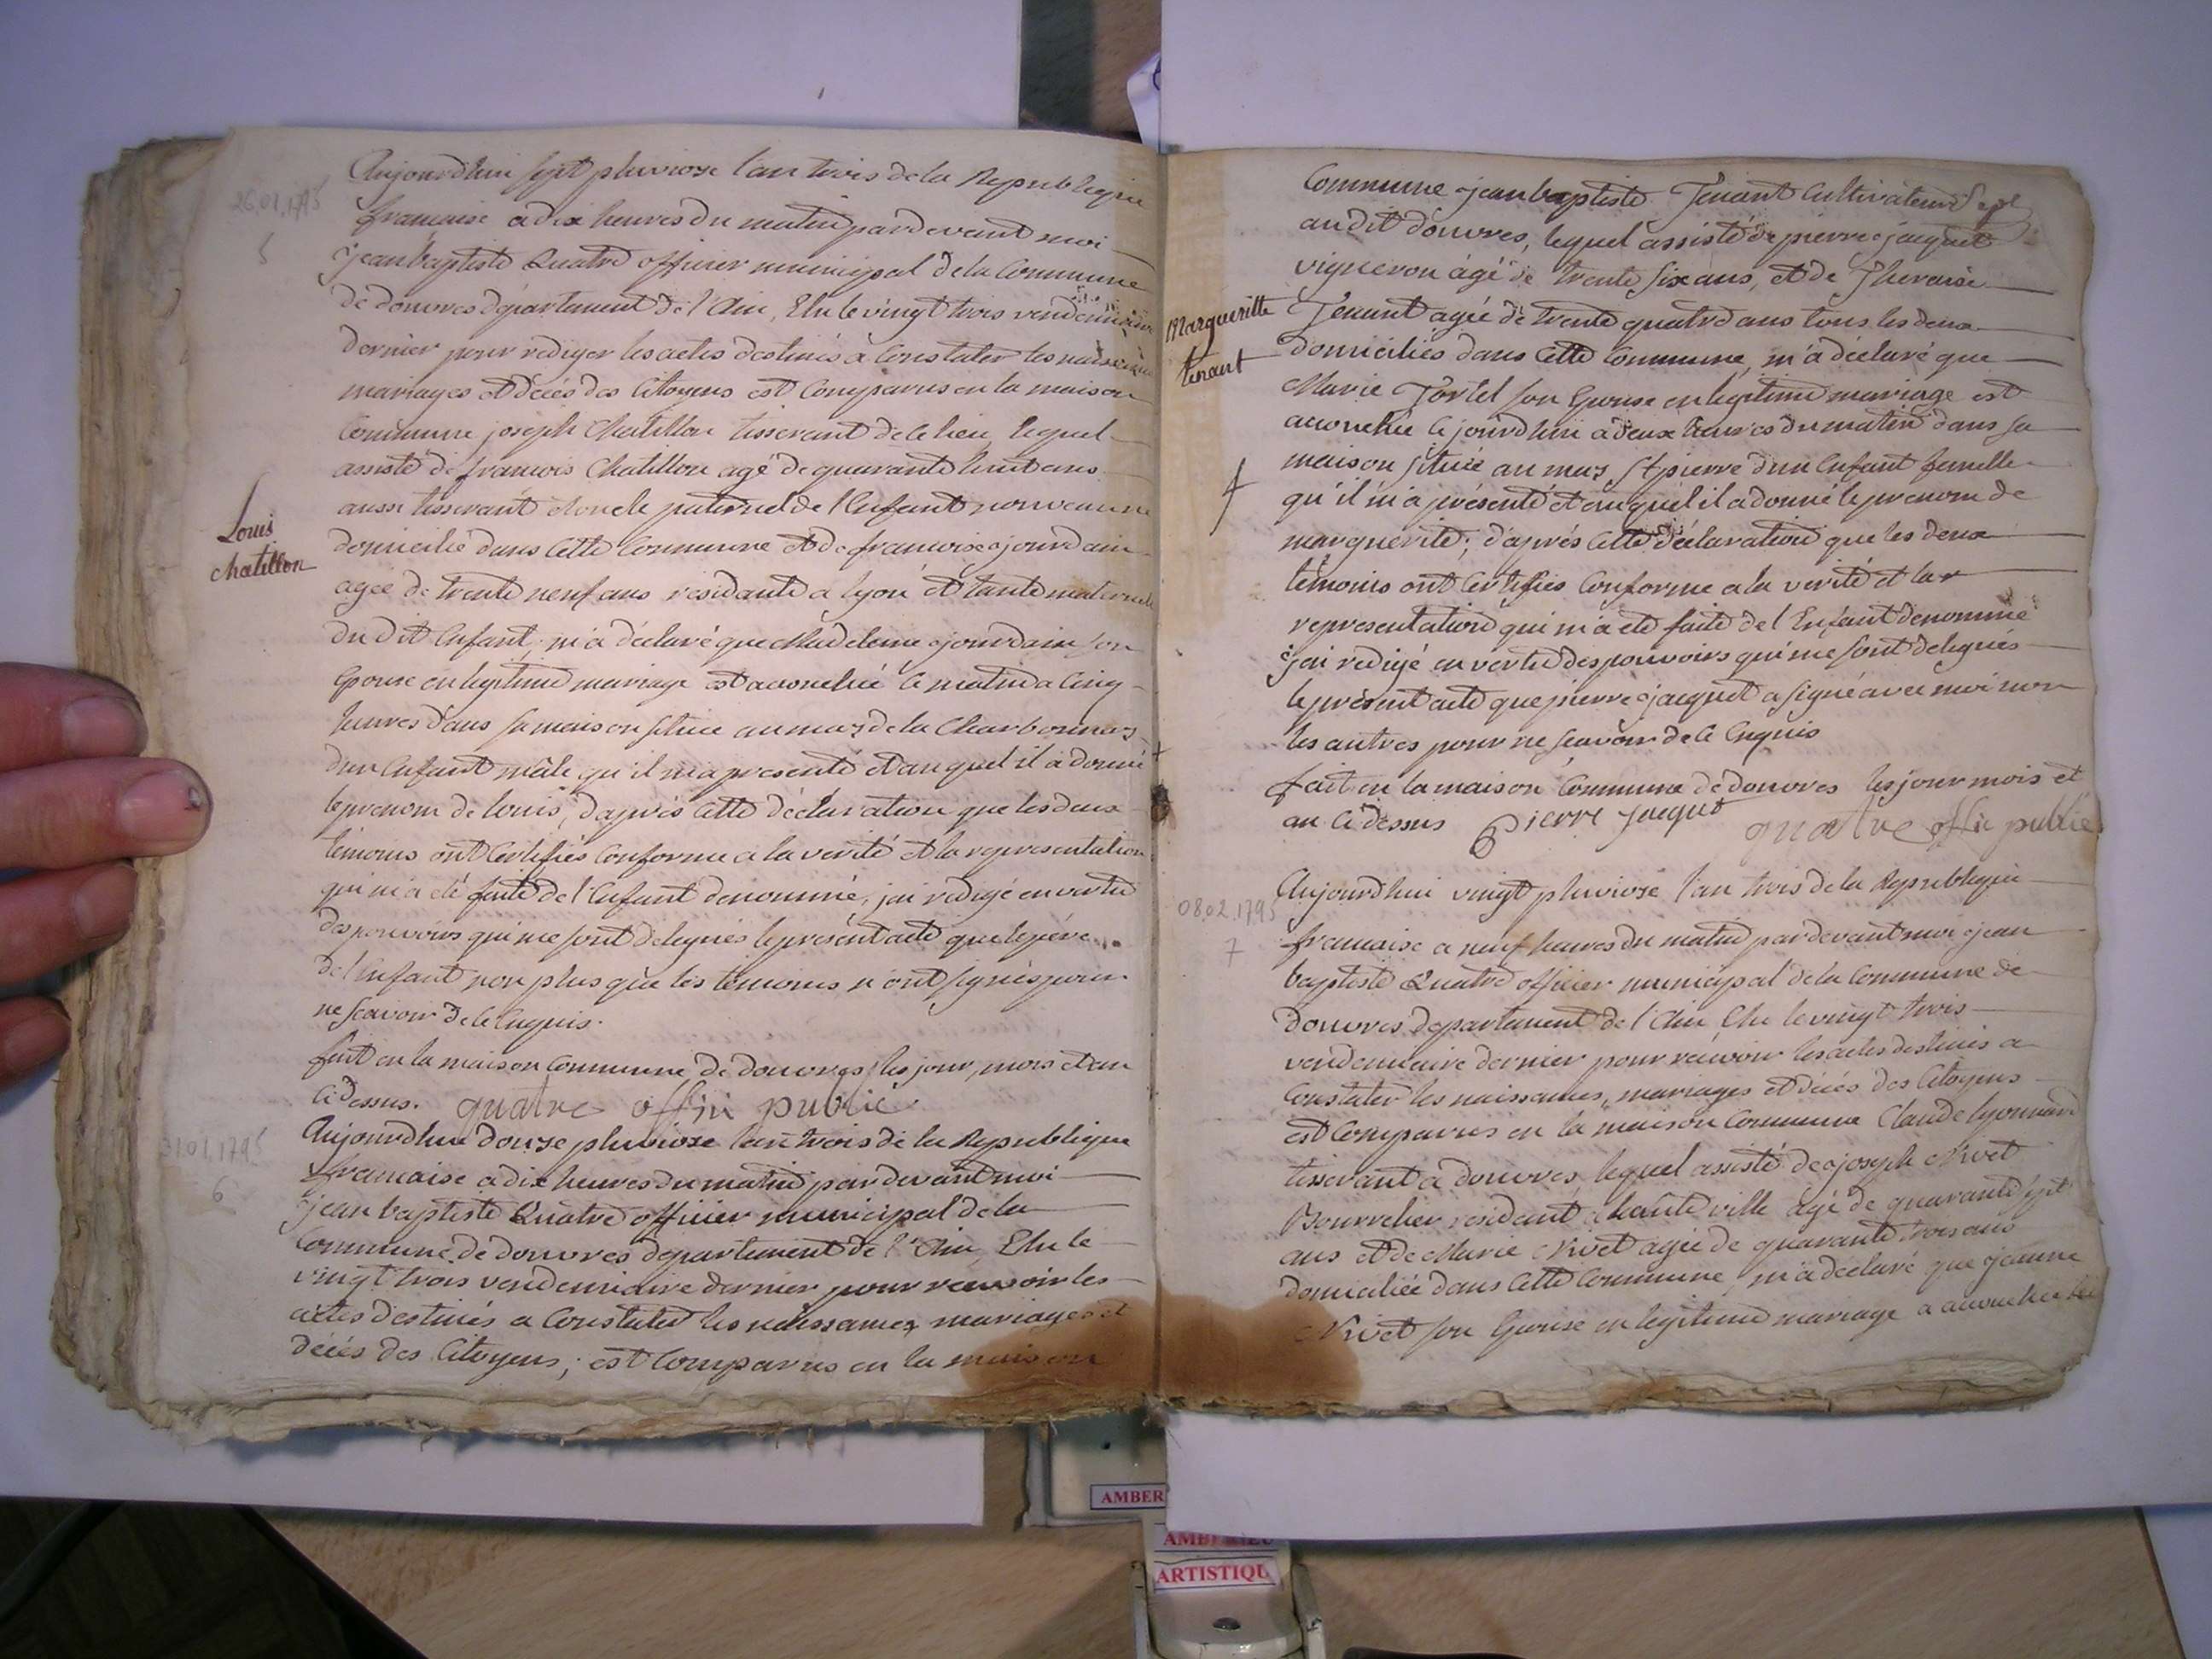 Aujourdhui sept pluviose l'an trois de la Republique
26.01.1795
francaise a dix heures du matin pardevant moi
5
jean baptiste Quatre officier municipal de la Commune
de douvres département de l'Ain, Elu le vingt trois vendemiaire
dernier pour rediger les actes destinés a Constater les naissances
mariages et décés des Citoyens est Comparus en la maison
Commune joseph Chatillon tisserant de ce lieu, lequel
assisté de francois Chatillon agé de quarante huit ans
aussi tisserant oncle paternel de l'Enfant nouveau né
Louis
chatillon
domicilié dans Cette Commune et de francoise jourdain
agée de trente neuf ans residante a lyon et tante maternelle
du dit Enfant, m'a déclaré que Madelaine jourdain son
Epouse en legitime mariage est accouchée ce matin a Cinq
heures dans sa maison située au mas de la Charbonnas
d'un Enfant mâle qu'il m'a presenté et auquel il a donné
le prenom de louis, d'aprés Cette déclaration que les deux
témoins ont Certifiés Conforme a la verité et la representation
qui m'a été faite de l'Enfant denommé, j'ai redigé en vertu
des pouvoirs qui me sont delegués le présent acte que le pére
de l'Enfant non plus que les témoins n'ont signés pour
ne scavoir de ce Enquis.
fait en la maison Commune de douvres les jour, mois et an
Ci dessus. quatre offiei public
Aujourdhui douze pluviose l'an trois de la Republique
31.01.1795
francaise a dix heures du matin par devant moi
6
jean baptiste Quatre officier municipal de la
Commune de douvres département de l'Ain, Elu le
vingt trois vendemiaire dernier pour recevoir les
actes destinés a Constater les naissances mariages et
décés des Citoyens; est Comparus en la maison
Commune jean baptiste Tenant Cultivateur
au dit douvres, lequel assisté de pierre jacquet
vigneron agé de trente six ans, et de
Margueritte
tenant
Tenant agée de trente quatre ans tous les deux
domiciliés dans Cette Commune, m'a déclaré que
Marie Tortel son Epouse en legitime mariage est
accouchée ce jourdhui a deux heures du matin dans sa
maison située au mas St pierre d'un Enfant femelle
qu'il m'a présenté et auquel il a donné le prenom de
marguerite; d'aprés Cette déclaration que les deux
témoins ont Certifiés Conforme a la verité et la
representation qui m'a été faite de l'Enfant denommé
j'ai redigé en vertu des pouvoirs qui me sont delegués
le présent acte que pierre jacquet a signé avec moi non
les autres pour ne scavoir de ce Enquis
fait en la maison Commune de douvres les jour mois et
an Ci dessus Pierre jacquet quatre offie public
Aujourdhui vingt pluviose l'an trois de la Republique
08.02.1795
francaise a neuf heures du matin par devant moi jean
7
baptiste Quatre officier municipal de la Commune de
douvres departement de l'Ain Elu le vingt trois
vendemiaire dernier pour recevoir les actes destinés a
Constater les naissances, mariages et décés des Citoyens
est Comparus en la maison Commune Claude lyonnard
tisserant a douvres, lequel assisté de joseph Nivet
Bourrelier résidant a hauteville agé de quarante sept
ans et de Marie Nivet agée de quarante trois ans
domiciliée dans Cette Commune, m'a declaré que jeanne
Nivet son Epouse en legitime mariage a accouchée
AMBER
ARTISTIQU